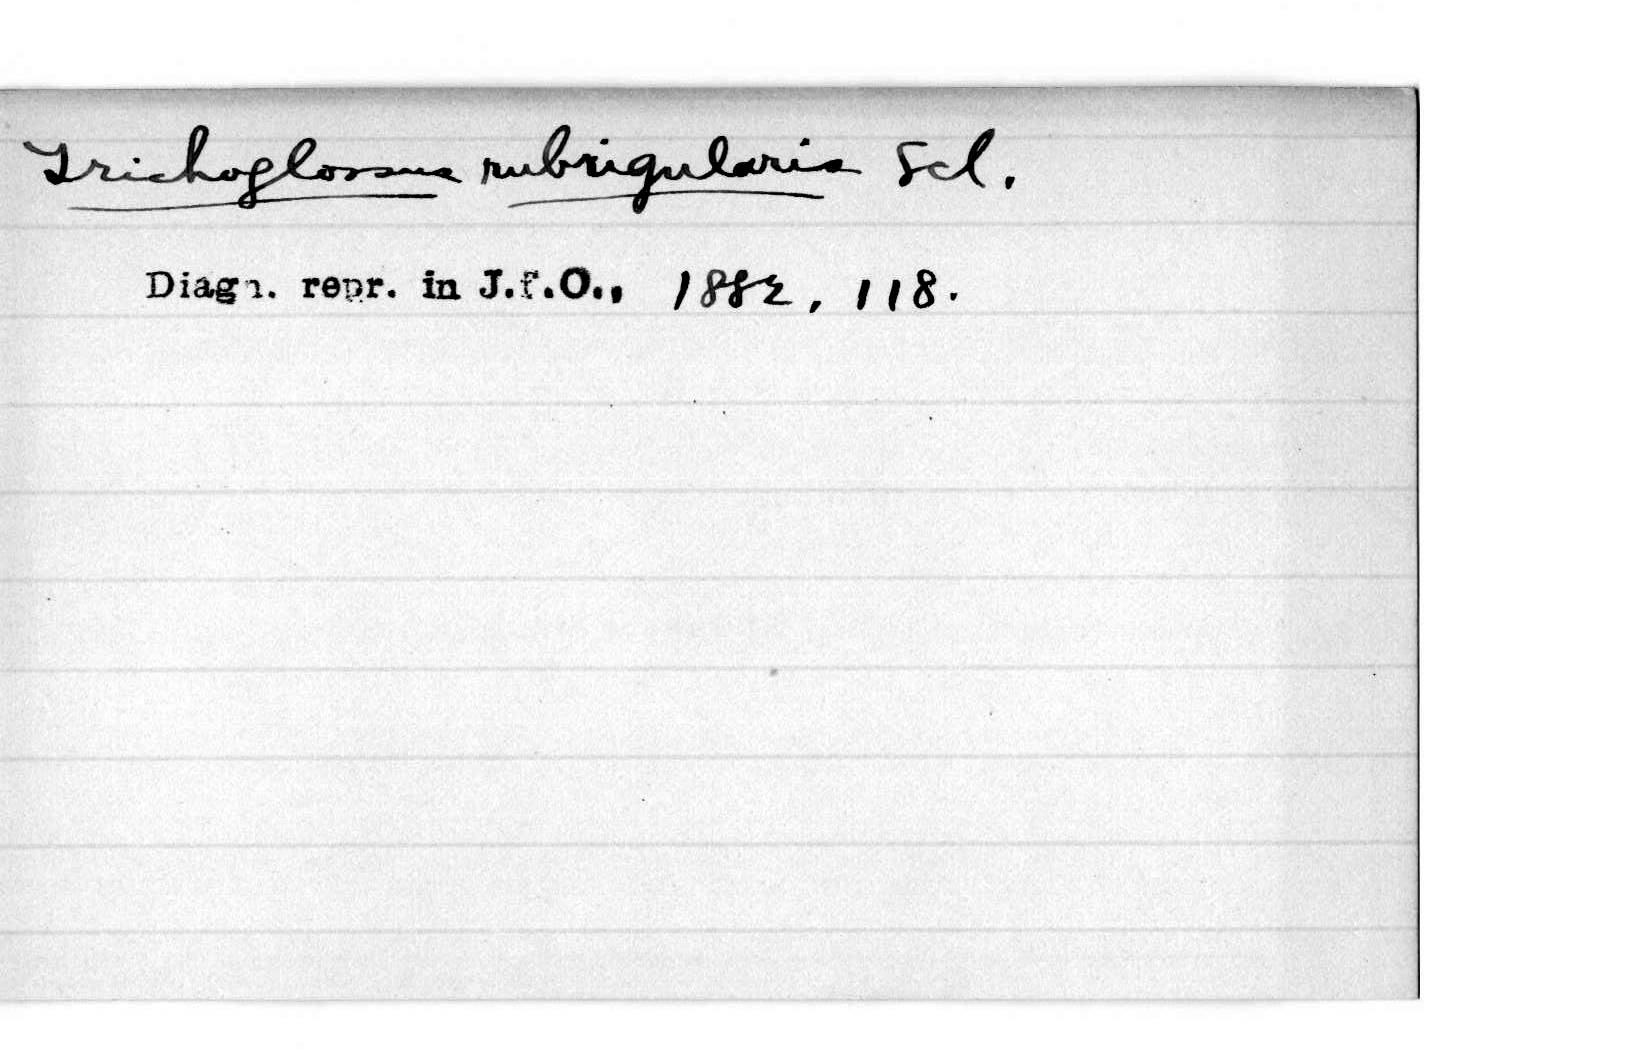 Trichoglossus rubrigularis Scl.
Diagn. repr. in J.f.O., 1882, 118.